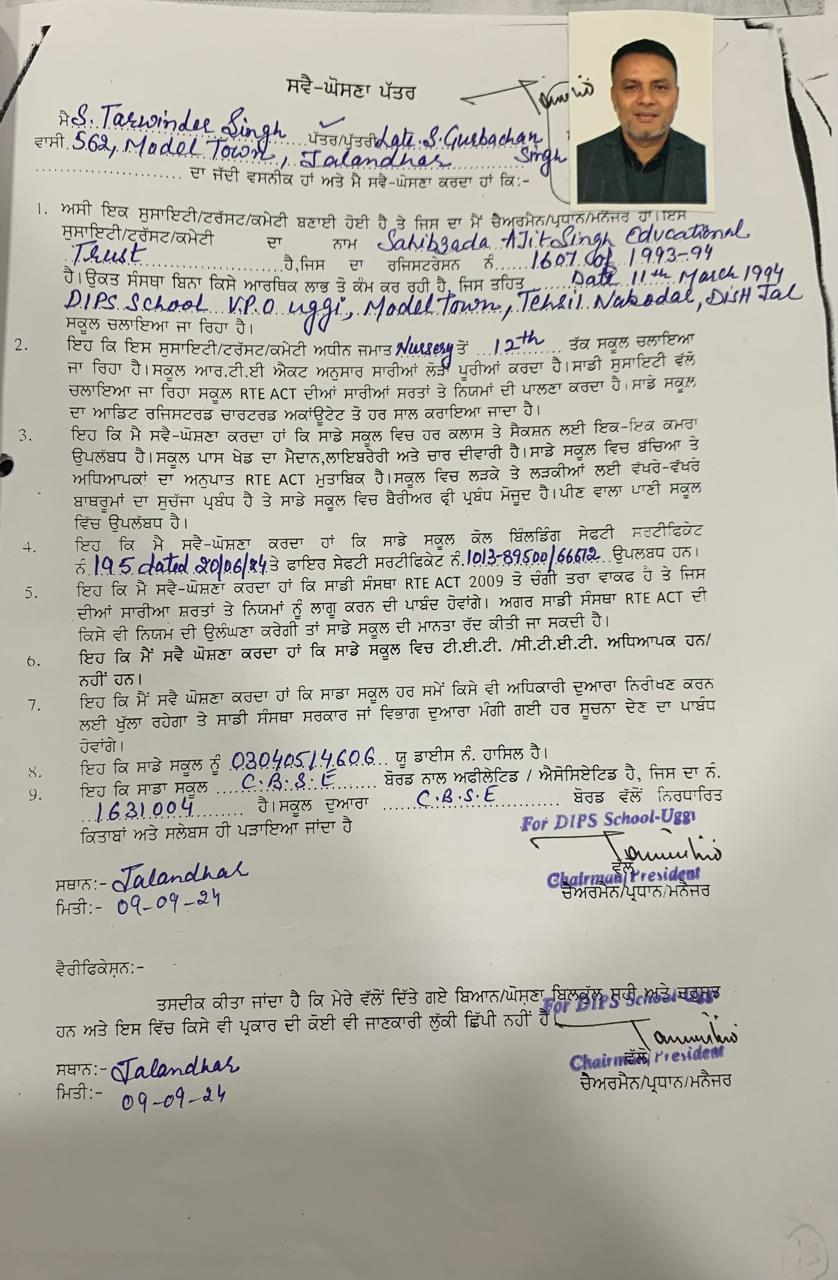 ਸਵੈ-ਘੋਸਣਾ ਪੱਤਰ
ਮੈ S. Tarwinder Singh ਪੱਤਰ/ਪੁੱਤਰੀ Late. S. Gurbachan Singh
ਵਾਸੀ 562, Model Town, Jalandhar
ਦਾ ਜੱਦੀ ਵਸਨੀਕ ਹਾਂ ਅਤੇ ਮੈ ਸਵੈ-ਘੋਸਣਾ ਕਰਦਾ ਹਾਂ ਕਿ:-
1. ਅਸੀ ਇਕ ਸੁਸਾਇਟੀ/ਟਰੱਸਟ/ਕਮੇਟੀ ਬਣਾਈ ਹੋਈ ਹੈ ਤੇ ਜਿਸ ਦਾ ਮੈਂ ਚੈਅਰਮੈਨ/ਪ੍ਰਧਾਨ/ਮਨੈਜਰ ਹਾਂ।ਇਸ
ਸੁਸਾਇਟੀ/ਟਰੱਸਟ/ਕਮੇਟੀ ਦਾ ਨਾਮ Sahibzada Ajit Singh Educational
Trust ਹੈ,ਜਿਸ ਦਾ ਰਜਿਸਟਰੇਸਨ ਨੰ. 1607 of 1993-94
ਹੈ।ਉਕਤ ਸੰਸਥਾ ਬਿਨਾ ਕਿਸੇ ਆਰਥਿਕ ਲਾਭ ਤੋ ਕੰਮ ਕਰ ਰਹੀ ਹੈ, ਜਿਸ ਤਹਿਤ Date 11th March 1994
DIPS School V.P.O Uggi, Model Town, Tehsil Nakodal, Distt Jal
ਸਕੂਲ ਚਲਾਇਆ ਜਾ ਰਿਹਾ ਹੈ।
2. ਇਹ ਕਿ ਇਸ ਸੁਸਾਇਟੀ/ਟਰੱਸਟ/ਕਮੇਟੀ ਅਧੀਨ ਜਮਾਤ Nursery ਤੋਂ 12th ਤੱਕ ਸਕੂਲ ਚਲਾਇਆ
ਜਾ ਰਿਹਾ ਹੈ।ਸਕੂਲ ਆਰ.ਟੀ.ਈ ਐਕਟ ਅਨੁਸਾਰ ਸਾਰੀਆਂ ਲੋੜਾਂ ਪੂਰੀਆਂ ਕਰਦਾ ਹੈ।ਸਾਡੀ ਸੁਸਾਇਟੀ ਵੱਲੋਂ
ਚਲਾਇਆ ਜਾ ਰਿਹਾ ਸਕੂਲ RTE ACT ਦੀਆਂ ਸਾਰੀਆਂ ਸਰਤਾਂ ਤੇ ਨਿਯਮਾਂ ਦੀ ਪਾਲਣਾ ਕਰਦਾ ਹੈ।ਸਾਡੇ ਸਕੂਲ
ਦਾ ਆਡਿਟ ਰਜਿਸਟਰਡ ਚਾਰਟਰਡ ਅਕਾਂਊਟੇਟ ਤੋ ਹਰ ਸਾਲ ਕਰਾਇਆ ਜਾਂਦਾ ਹੈ।
3. ਇਹ ਕਿ ਮੈ ਸਵੈ-ਘੋਸ਼ਣਾ ਕਰਦਾ ਹਾਂ ਕਿ ਸਾਡੇ ਸਕੂਲ ਵਿਚ ਹਰ ਕਲਾਸ ਤੇ ਸੈਕਸ਼ਨ ਲਈ ਇਕ-ਇਕ ਕਮਰਾ
ਉਪਲੱਬਧ ਹੈ।ਸਕੂਲ ਪਾਸ ਖੇਡ ਦਾ ਮੈਦਾਨ,ਲਾਇਬਰੇਰੀ ਅਤੇ ਚਾਰ ਦੀਵਾਰੀ ਹੈ।ਸਾਡੇ ਸਕੂਲ ਵਿਚ ਬੱਚਿਆ ਤੇ
ਅਧਿਆਪਕਾਂ ਦਾ ਅਨੁਪਾਤ RTE ACT ਮੁਤਾਬਿਕ ਹੈ।ਸਕੂਲ ਵਿਚ ਲੜਕੇ ਤੇ ਲੜਕੀਆਂ ਲਈ ਵੱਖਰੇ-ਵੱਖਰੇ
ਬਾਥਰੂਮਾਂ ਦਾ ਸੁਚੱਜਾ ਪ੍ਰਬੰਧ ਹੈ ਤੇ ਸਾਡੇ ਸਕੂਲ ਵਿਚ ਬੈਰੀਅਰ ਫ੍ਰੀ ਪ੍ਰਬੰਧ ਮੋਜੂਦ ਹੈ।ਪੀਣ ਵਾਲਾ ਪਾਣੀ ਸਕੂਲ
ਵਿੱਚ ਉਪਲੱਬਧ ਹੈ।
4. ਇਹ ਕਿ ਮੈ ਸਵੈ-ਘੋਸ਼ਣਾ ਕਰਦਾ ਹਾਂ ਕਿ ਸਾਡੇ ਸਕੂਲ ਕੋਲ ਬਿਲਡਿੰਗ ਸੇਫਟੀ ਸਰਟੀਫਿਕੇਟ
ਨੰ. 195 dated 20/06/24 ਤੇ ਫਾਇਰ ਸੇਫਟੀ ਸਰਟੀਫਿਕੇਟ ਨੰ. 1013-89500/66672 ਉਪਲਬਧ ਹਨ।
5. ਇਹ ਕਿ ਮੈ ਸਵੈ-ਘੋਸ਼ਣਾ ਕਰਦਾ ਹਾਂ ਕਿ ਸਾਡੀ ਸੰਸਥਾ RTE ACT 2009 ਤੋ ਚੰਗੀ ਤਰਾ ਵਾਕਫ ਹੈ ਤੇ ਜਿਸ
ਦੀਆਂ ਸਾਰੀਆ ਸ਼ਰਤਾਂ ਤੇ ਨਿਯਮਾਂ ਨੂੰ ਲਾਗੂ ਕਰਨ ਦੀ ਪਾਬੰਦ ਹੋਵਾਂਗੇ। ਅਗਰ ਸਾਡੀ ਸੰਸਥਾ RTE ACT ਦੀ
ਕਿਸੇ ਵੀ ਨਿਯਮ ਦੀ ਉਲੰਘਣਾ ਕਰੇਗੀ ਤਾਂ ਸਾਡੇ ਸਕੂਲ ਦੀ ਮਾਨਤਾ ਰੱਦ ਕੀਤੀ ਜਾ ਸਕਦੀ ਹੈ।
6. ਇਹ ਕਿ ਮੈਂ ਸਵੈ ਘੋਸ਼ਣਾ ਕਰਦਾ ਹਾਂ ਕਿ ਸਾਡੇ ਸਕੂਲ ਵਿਚ ਟੀ.ਈ.ਟੀ. /ਸੀ.ਟੀ.ਈ.ਟੀ. ਅਧਿਆਪਕ ਹਨ/
ਨਹੀਂ ਹਨ।
7. ਇਹ ਕਿ ਮੈਂ ਸਵੈ ਘੋਸ਼ਣਾ ਕਰਦਾ ਹਾਂ ਕਿ ਸਾਡਾ ਸਕੂਲ ਹਰ ਸਮੇਂ ਕਿਸੇ ਵੀ ਅਧਿਕਾਰੀ ਦੁਆਰਾ ਨਿਰੀਖਣ ਕਰਨ
ਲਈ ਖੁੱਲਾ ਰਹੇਗਾ ਤੇ ਸਾਡੀ ਸੰਸਥਾ ਸਰਕਾਰ ਜਾਂ ਵਿਭਾਗ ਦੁਆਰਾ ਮੰਗੀ ਗਈ ਹਰ ਸੂਚਨਾ ਦੇਣ ਦਾ ਪਾਬੰਧ
ਹੋਵਾਂਗੇ।
8. ਇਹ ਕਿ ਸਾਡੇ ਸਕੂਲ ਨੂੰ 03040514606 ਯੂ ਡਾਈਸ ਨੰ. ਹਾਸਿਲ ਹੈ।
9. ਇਹ ਕਿ ਸਾਡਾ ਸਕੂਲ C.B.S.E ਬੋਰਡ ਨਾਲ ਅਫੀਲੇਟਿਡ / ਐਸੋਸਿਏਟਿਡ ਹੈ, ਜਿਸ ਦਾ ਨੰ.
1631004 ਹੈ।ਸਕੂਲ ਦੁਆਰਾ C.B.S.E ਬੋਰਡ ਵੱਲੋਂ ਨਿਰਧਾਰਿਤ
ਕਿਤਾਬਾਂ ਅਤੇ ਸਲੇਬਸ ਹੀ ਪੜਾਇਆ ਜਾਂਦਾ ਹੈ
For DIPS School-Uggi
ਵੱਲੋਂ
ਸਥਾਨ:- Jalandhar
Chairman/President
ਮਿਤੀ:- 09-09-24
ਚੈਅਰਮੈਨ/ਪ੍ਰਧਾਨ/ਮਨੈਜਰ
ਵੈਰੀਫਿਕੇਸ਼ਨ:-
ਤਸਦੀਕ ਕੀਤਾ ਜਾਂਦਾ ਹੈ ਕਿ ਮੇਰੇ ਵੱਲੋਂ ਦਿੱਤੇ ਗਏ ਬਿਆਨ/ਘੋਸ਼ਣਾ ਬਿਲਕੁੱਲ ਸਹੀ ਅਤੇ ਦਰੁਸਤ
For DIPS School-Uggi
ਹਨ ਅਤੇ ਇਸ ਵਿੱਚ ਕਿਸੇ ਵੀ ਪ੍ਰਕਾਰ ਦੀ ਕੋਈ ਵੀ ਜਾਣਕਾਰੀ ਲੁੱਕੀ ਛਿੱਪੀ ਨਹੀਂ ਹੈ।
ਵੱਲੋਂ
ਸਥਾਨ:- Jalandhar
Chairman/President
ਮਿਤੀ:- 09-09-24
ਚੈਅਰਮੈਨ/ਪ੍ਰਧਾਨ/ਮਨੈਜਰ
13